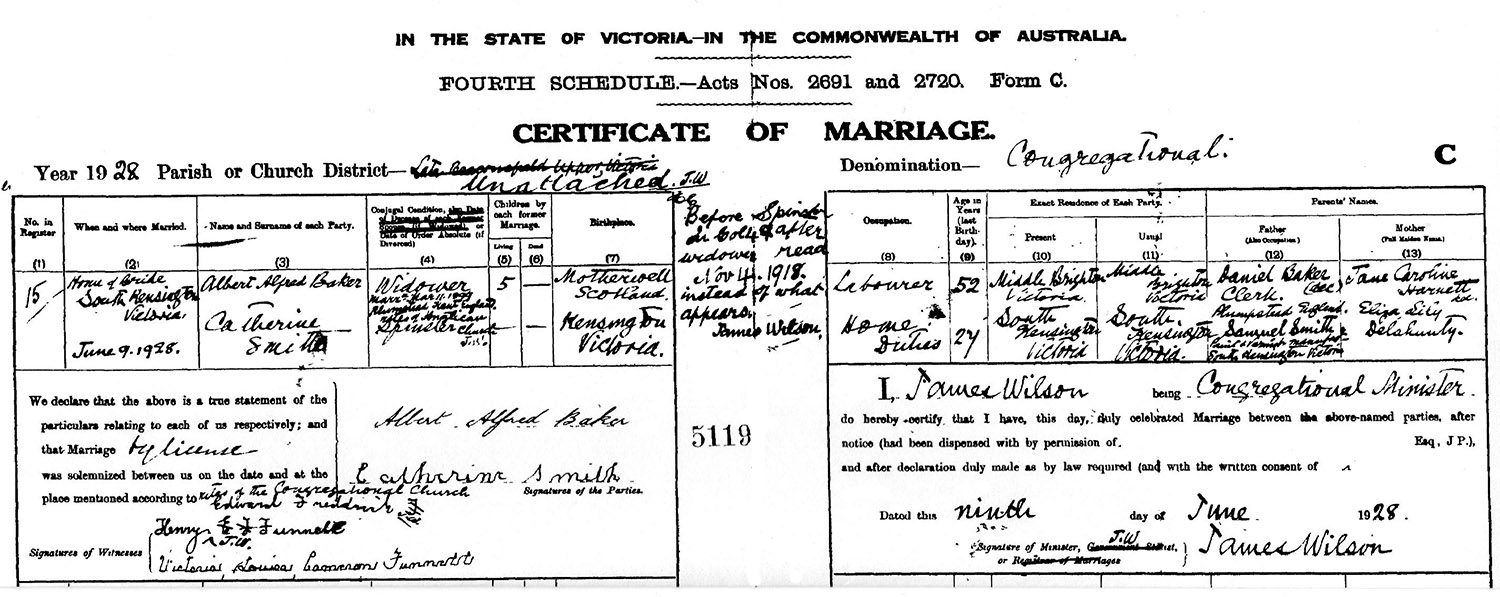 IN THE STATE OF VICTORIA.—IN THE COMMONWEALTH OF AUSTRALIA.
FOURTH SCHEDULE.—Acts Nos. 2691 and 2720. Form C.
CERTIFICATE OF MARRIAGE.
Year 1928 Parish or Church District—
Unattached. J.W
Denomination— Congregational.
C
No. in Register
When and where Married.
Name and Surname of each Party.
Conjugal Condition, or Date of Order Absolute (if Divorced)
Children by each former Marriage.
Living
Dead
Birthplace.
Occupation.
Age in Years (last Birthday).
Exact Residence of Each Party.
Present
Usual
Parents' Names.
Father (Also Occupation.)
Mother (Full Maiden Name.)
(1) (2) (3) (4) (5) (6) (7) (8) (9) (10) (11) (12) (13)
15
Home of Bride
South Kensington
Victoria.
June 9. 1928.
Albert Alfred Baker
Catherine
Smith
Widower
Spinster
5 —
— —
Motherwell
Scotland.
Kensington
Victoria.
Before Spinster
in Col 4 & after
widower read
Nov 4. 1918.
instead of what
appears.
James Wilson.
Labourer
Home
Duties
52
27
Middle Brighton
Victoria.
South
Kensington
Victoria
Middle
Brighton
Victoria
South
Kensington
Victoria.
Daniel Baker
Clerk. (dec)
Plumpstead England.
Samuel Smith
South Kensington Victoria
Jane Caroline
Harnett
Eliza Lily
Delahunty.
We declare that the above is a true statement of the
particulars relating to each of us respectively; and
that Marriage by license
was solemnized between us on the date and at the
place mentioned according to rites of the Congregational Church
Albert Alfred Baker
Catherine Smith
Signatures of the Parties.
Edward
Henry
J.W.
Funnell
Signatures of Witnesses
Victoria Louisa Cameron Funnell
5119
I, James Wilson being Congregational Minister.
do hereby certify that I have, this day, duly celebrated Marriage between the above-named parties, after
notice (had been dispensed with by permission of. Esq, J P.),
and after declaration duly made as by law required (and with the written consent of
Dated this ninth day of June 1928.
J.W
Signature of Minister, Government Statist,
or Registrar of Marriages
James Wilson